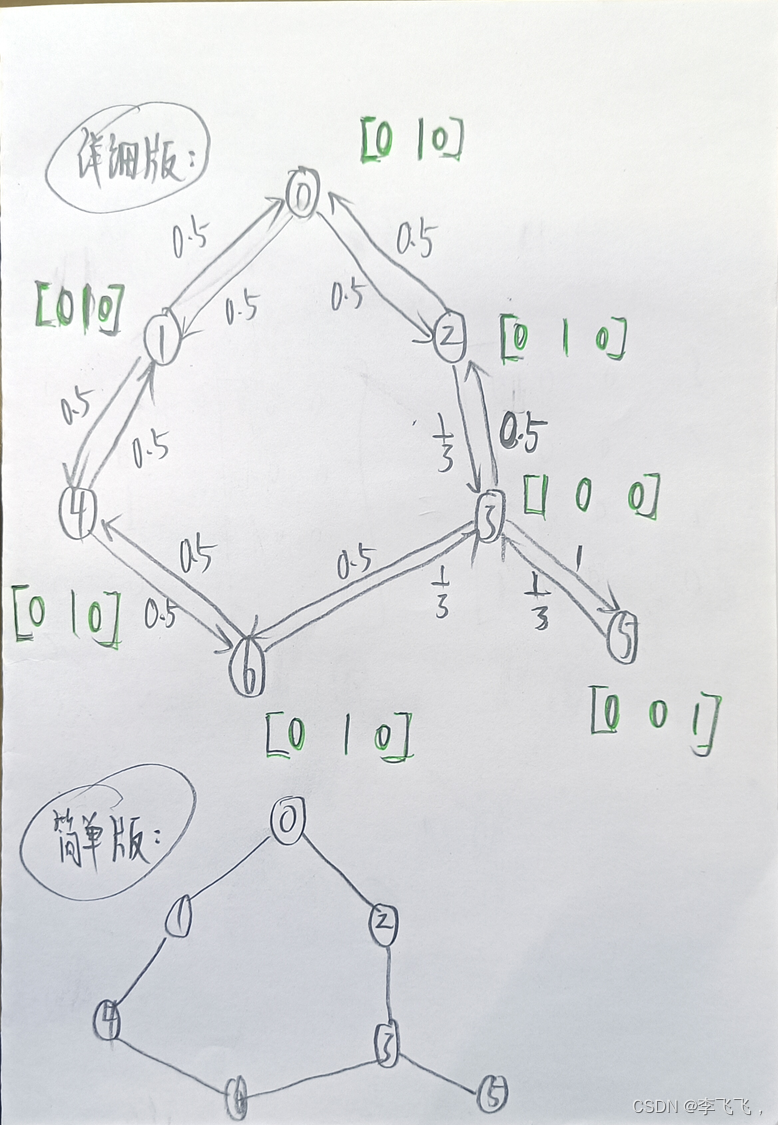 详细版:
[0 1 0]
0
0.5 0.5
0.5 0.5
[0 1 0]
1 2 [0 1 0]
0.5 0.5 1/3 0.5
4 3 [1 0 0]
0.5 0.5 1
0.5 1/3 1/3
[0 1 0]
6 5
[0 1 0] [0 0 1]
简单版:
0
1 2
4 3
6 5
CSDN @李飞飞,